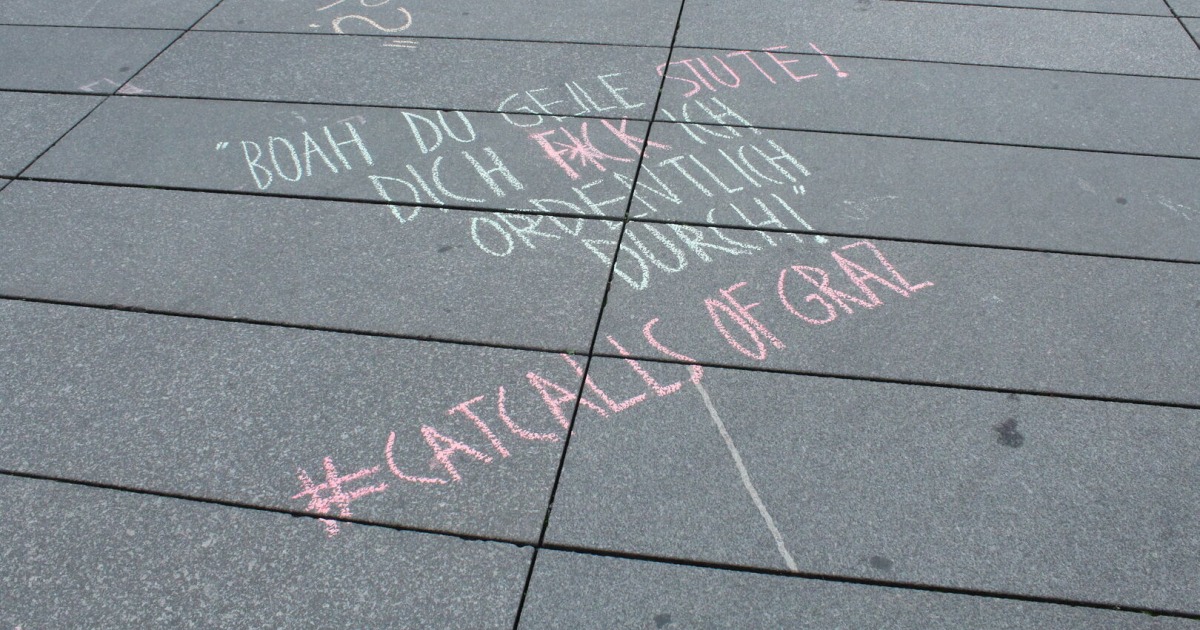 "BOAH DU GEILE STUTE!
DICH F*CK ICH
ORDENTLICH
DURCH!"
#CATCALLS OF GRAZ